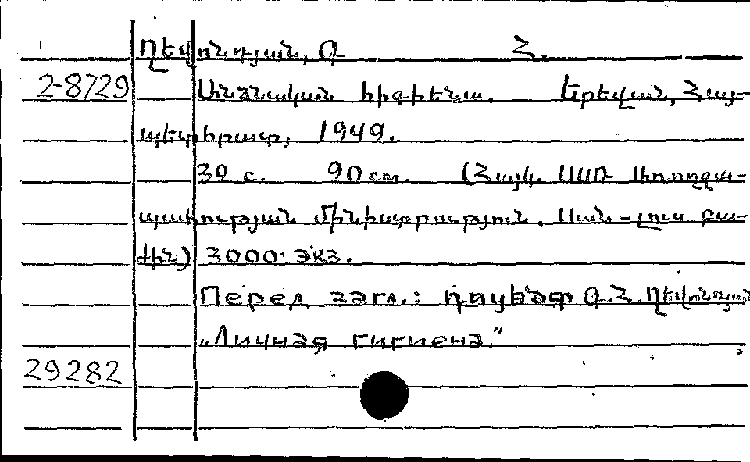 Ղեվոնդյան, Օ Հ.
2-8729 Անձնական հիգիենա. Երեվան, Հայ-
պետհրատ, 1949.
39 с. 90 см. (Հայկ. ՍՍՌ Առողջա-
պահության Մինիստրություն. Սան-լուս բա-
ժին) 3000 экз.
Перед загл.: Օ.Հ. Ղեվոնդյան
„Личная гигиена."
29282